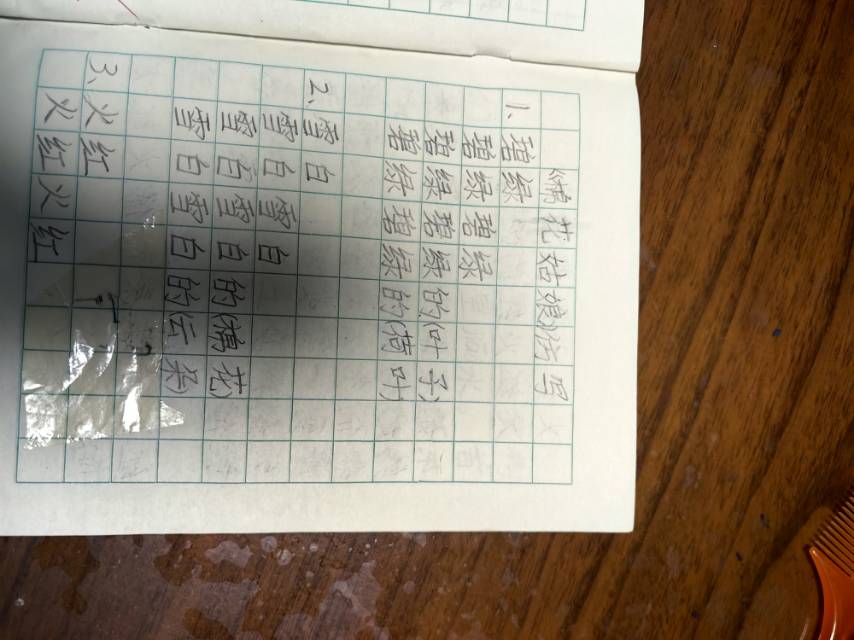 《棉花姑娘》仿写
1、碧绿
碧绿碧绿
碧绿碧绿的(叶子)
碧绿碧绿的(荷叶)
2、雪白
雪白雪白
雪白雪白的(棉花)
雪白雪白的(云朵)
3、火红
火红火红